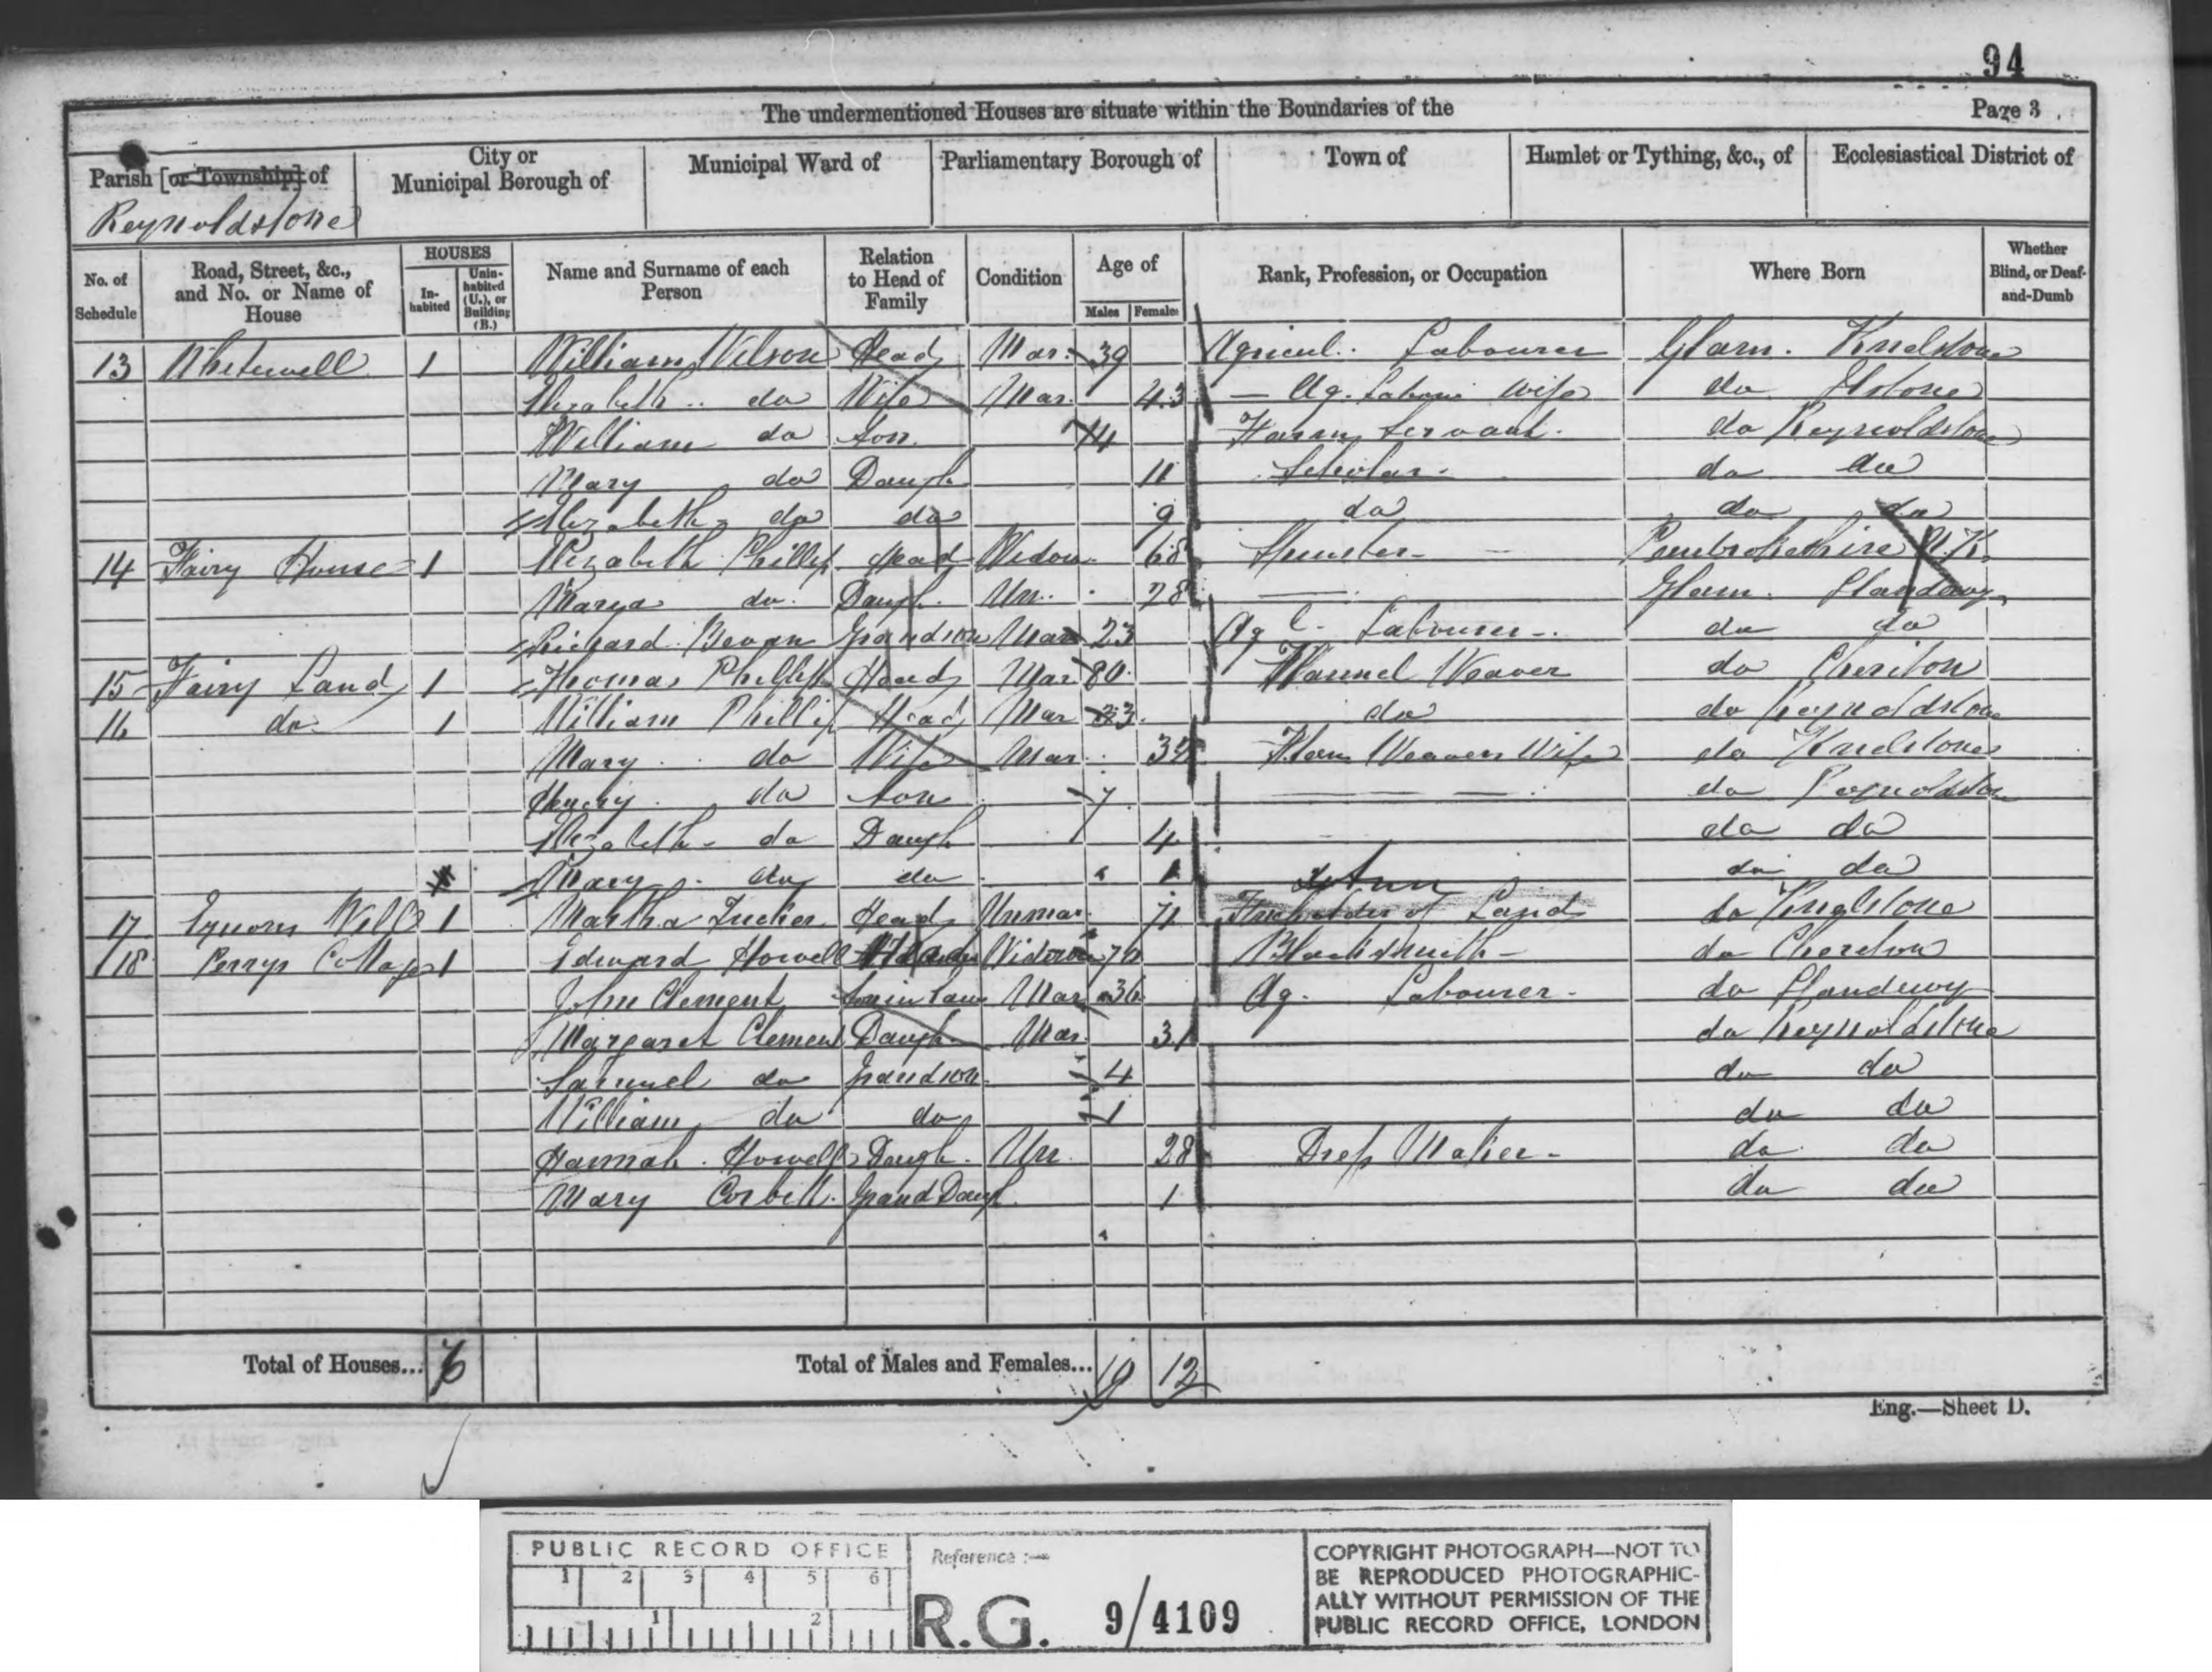 94
The undermentioned Houses are situate within the Boundaries of the Page 3
Parish [or Township] of
City or Municipal Borough of
Municipal Ward of
Parliamentary Borough of
Town of
Hamlet or Tything, &c., of
Ecclesiastical District of
Reynoldstone
No. of Schedule
Road, Street, &c., and No. or Name of House
HOUSES
Inhabited
Uninhabited (U.), or Building (B.)
Name and Surname of each Person
Relation to Head of Family
Condition
Age of
Males Females
Rank, Profession, or Occupation
Where Born
Whether Blind, or Deaf-and-Dumb
13 Whitewell 1 William Wilson Head Mar. 39 Agricul. Labourer Glam. Knelstone
Elizabeth do Wife Mar. 43 Ag. Labour wife do Ilstone
William do Son 14 Farm Servant do Reynoldstone
Mary do Daugh 11 Scholar do do
Elizabeth do do 9 do do do
14 Fairy House 1 Elizabeth Phillip Head Widow 68 Pembrokeshire N.K.
Marya do Daugh. Un. 28 Glam. Llandewy
Richard Bevan Grandson Mar 23 Ag. Labourer do do
15 Fairy Land 1 Thomas Phillip Head Mar 80 Flannel Weaver do Cheriton
16 do 1 William Phillip Head Mar 33 do do Reynoldstone
Mary do Wife Mar Weavers Wife do Knelstone
Henry do Son 7 do Reynoldston
Elizabeth do Daugh 4 do do
Mary do do 1 do do
17 Well 1 Martha Tucker Head Unmar. 71 Freeholder of Land do Knelstone
18 Perrys Cottage 1 Edward Howell Head Widower Blacksmith do Cheriton
John Clement Son in Law Mar 36 Ag. Labourer do Llandewy
Margaret Clement Daugh Mar. 31 do Reynoldstone
Samuel do Grandson 4 do do
William do do 1 do do
Hannah Howell Daugh. Un. 28 Dress Maker do do
Mary Corbell Grand Daugh 1 do do
Total of Houses... 6 Total of Males and Females... 10 12
Eng.—Sheet D.
PUBLIC RECORD OFFICE
1 2 3 4 5 6
1 2
Reference :—
R.G. 9/4109
COPYRIGHT PHOTOGRAPH—NOT TO
BE REPRODUCED PHOTOGRAPHIC-
ALLY WITHOUT PERMISSION OF THE
PUBLIC RECORD OFFICE, LONDON